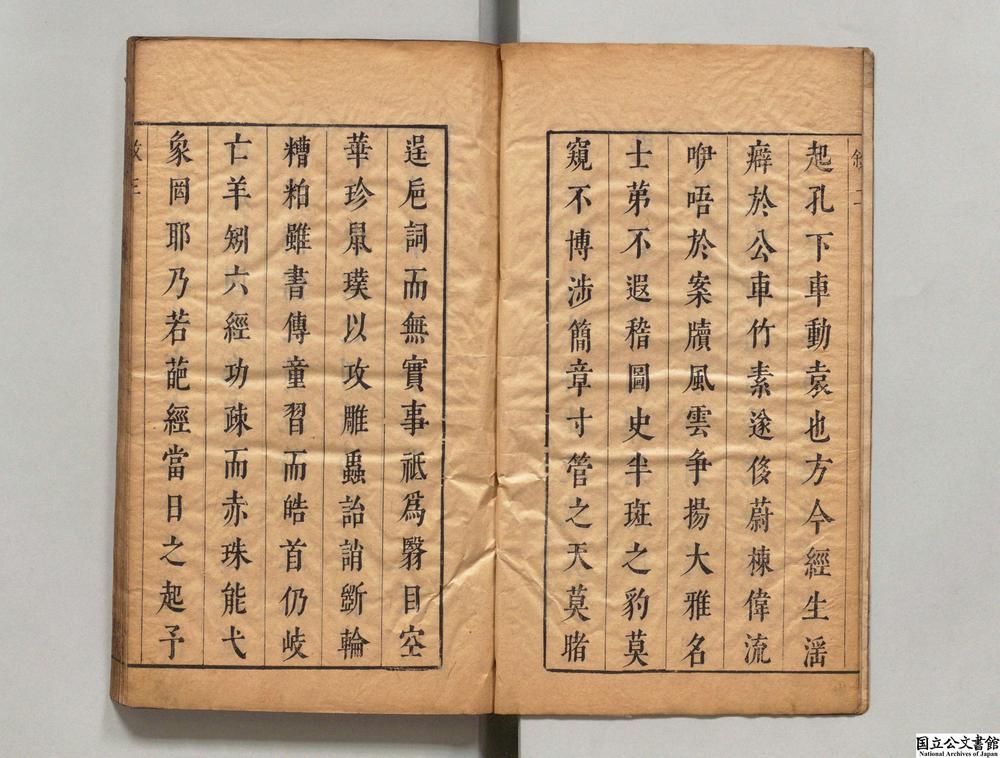 敘二
起孔下車動袁也方今經生滛
癖於公車竹素遂侈蔚棟偉流
咿唔於案牘風雲争揚大雅名
士苐不遐稽圖史半斑之豹莫
窺不博涉簡章寸管之天莫睹
逞巵詞而無實事祗爲翳目空
華珍鼠璞以攻雕蟲詒誚斲輪
糟粕雖書傳童習而皓首仍岐
亡羊矧六經功疎而赤珠能弋
象罔耶乃若葩經當日之起予
敘三
国立公文書館
National Archives of Japan